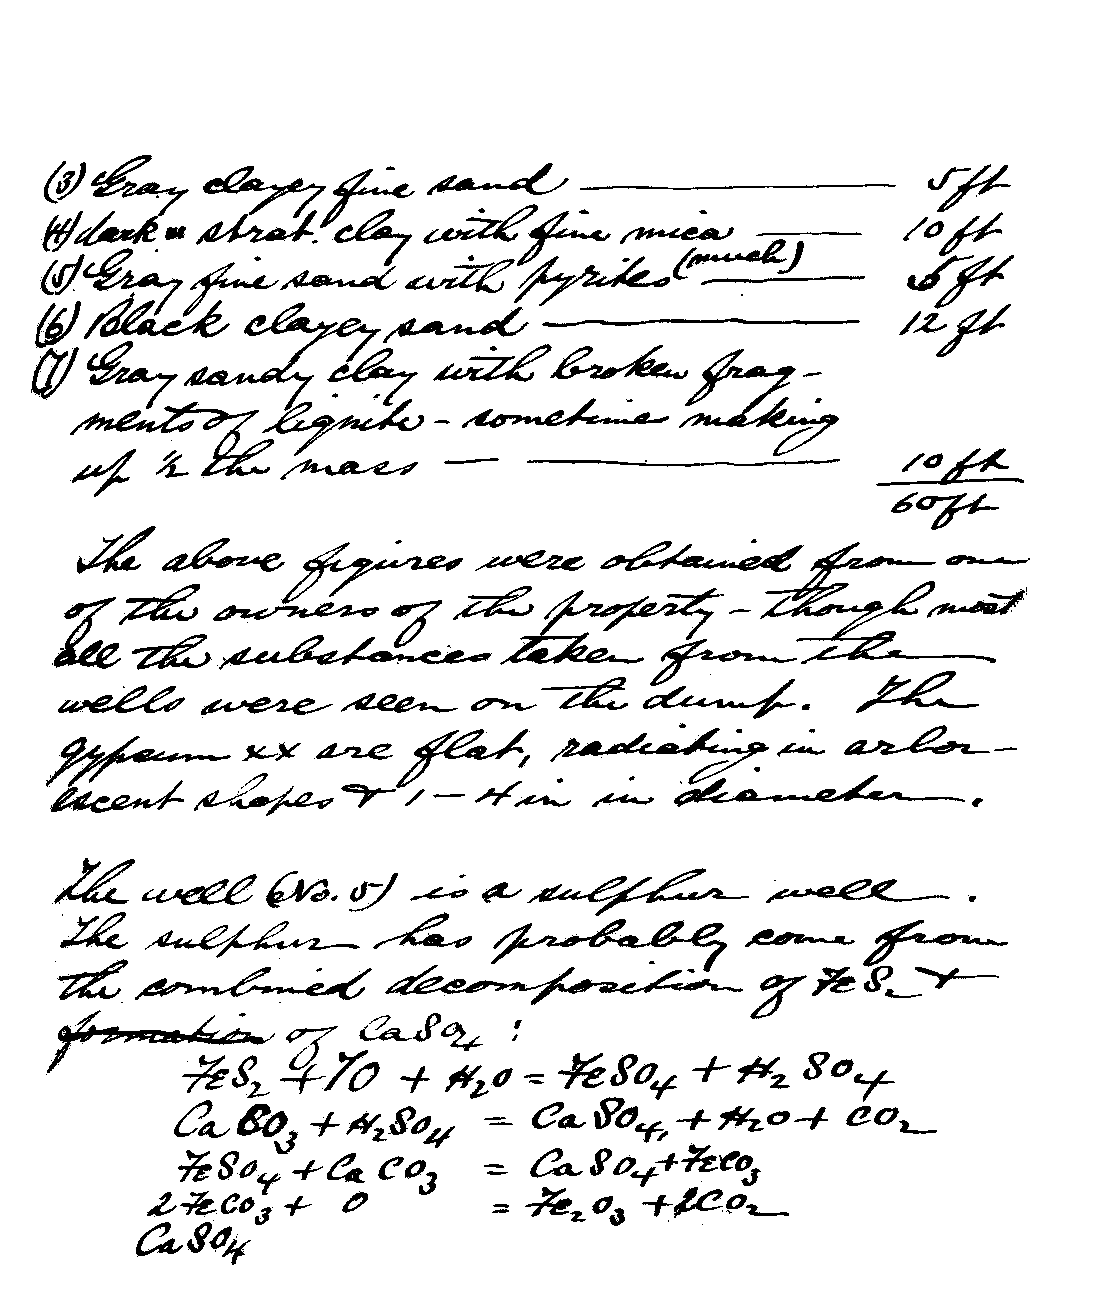 (3) Gray clayey fine sand — 5 ft
(4) dark strat. clay with fine mica — 10 ft
(5) Gray fine sand with pyrites (much) — 5 ft
(6) Black clayey sand — 12 ft
(7) Gray sandy clay with broken frag-
ments of lignite - sometime making
up ½ the mass — — 10 ft
60 ft
The above figures were obtained from one
of the owners of the property - though most
all the substances taken from the
wells were seen on the dump. The
gypsum xx are flat, radiating in arbor-
escent shapes & 1 - 4 in in diameter.
The well (No. 5) is a sulphur well.
The sulphur has probably come from
the combined decomposition of FeS₂ &
formation of CaSO₄ :
FeS₂ + 7O + H₂O = FeSO₄ + H₂SO₄
CaCO₃ + H₂SO₄ = CaSO₄ + H₂O + CO₂
FeSO₄ + CaCO₃ = CaSO₄ + FeCO₃
2FeCO₃ + O = Fe₂O₃ + 2CO₂
CaSO₄